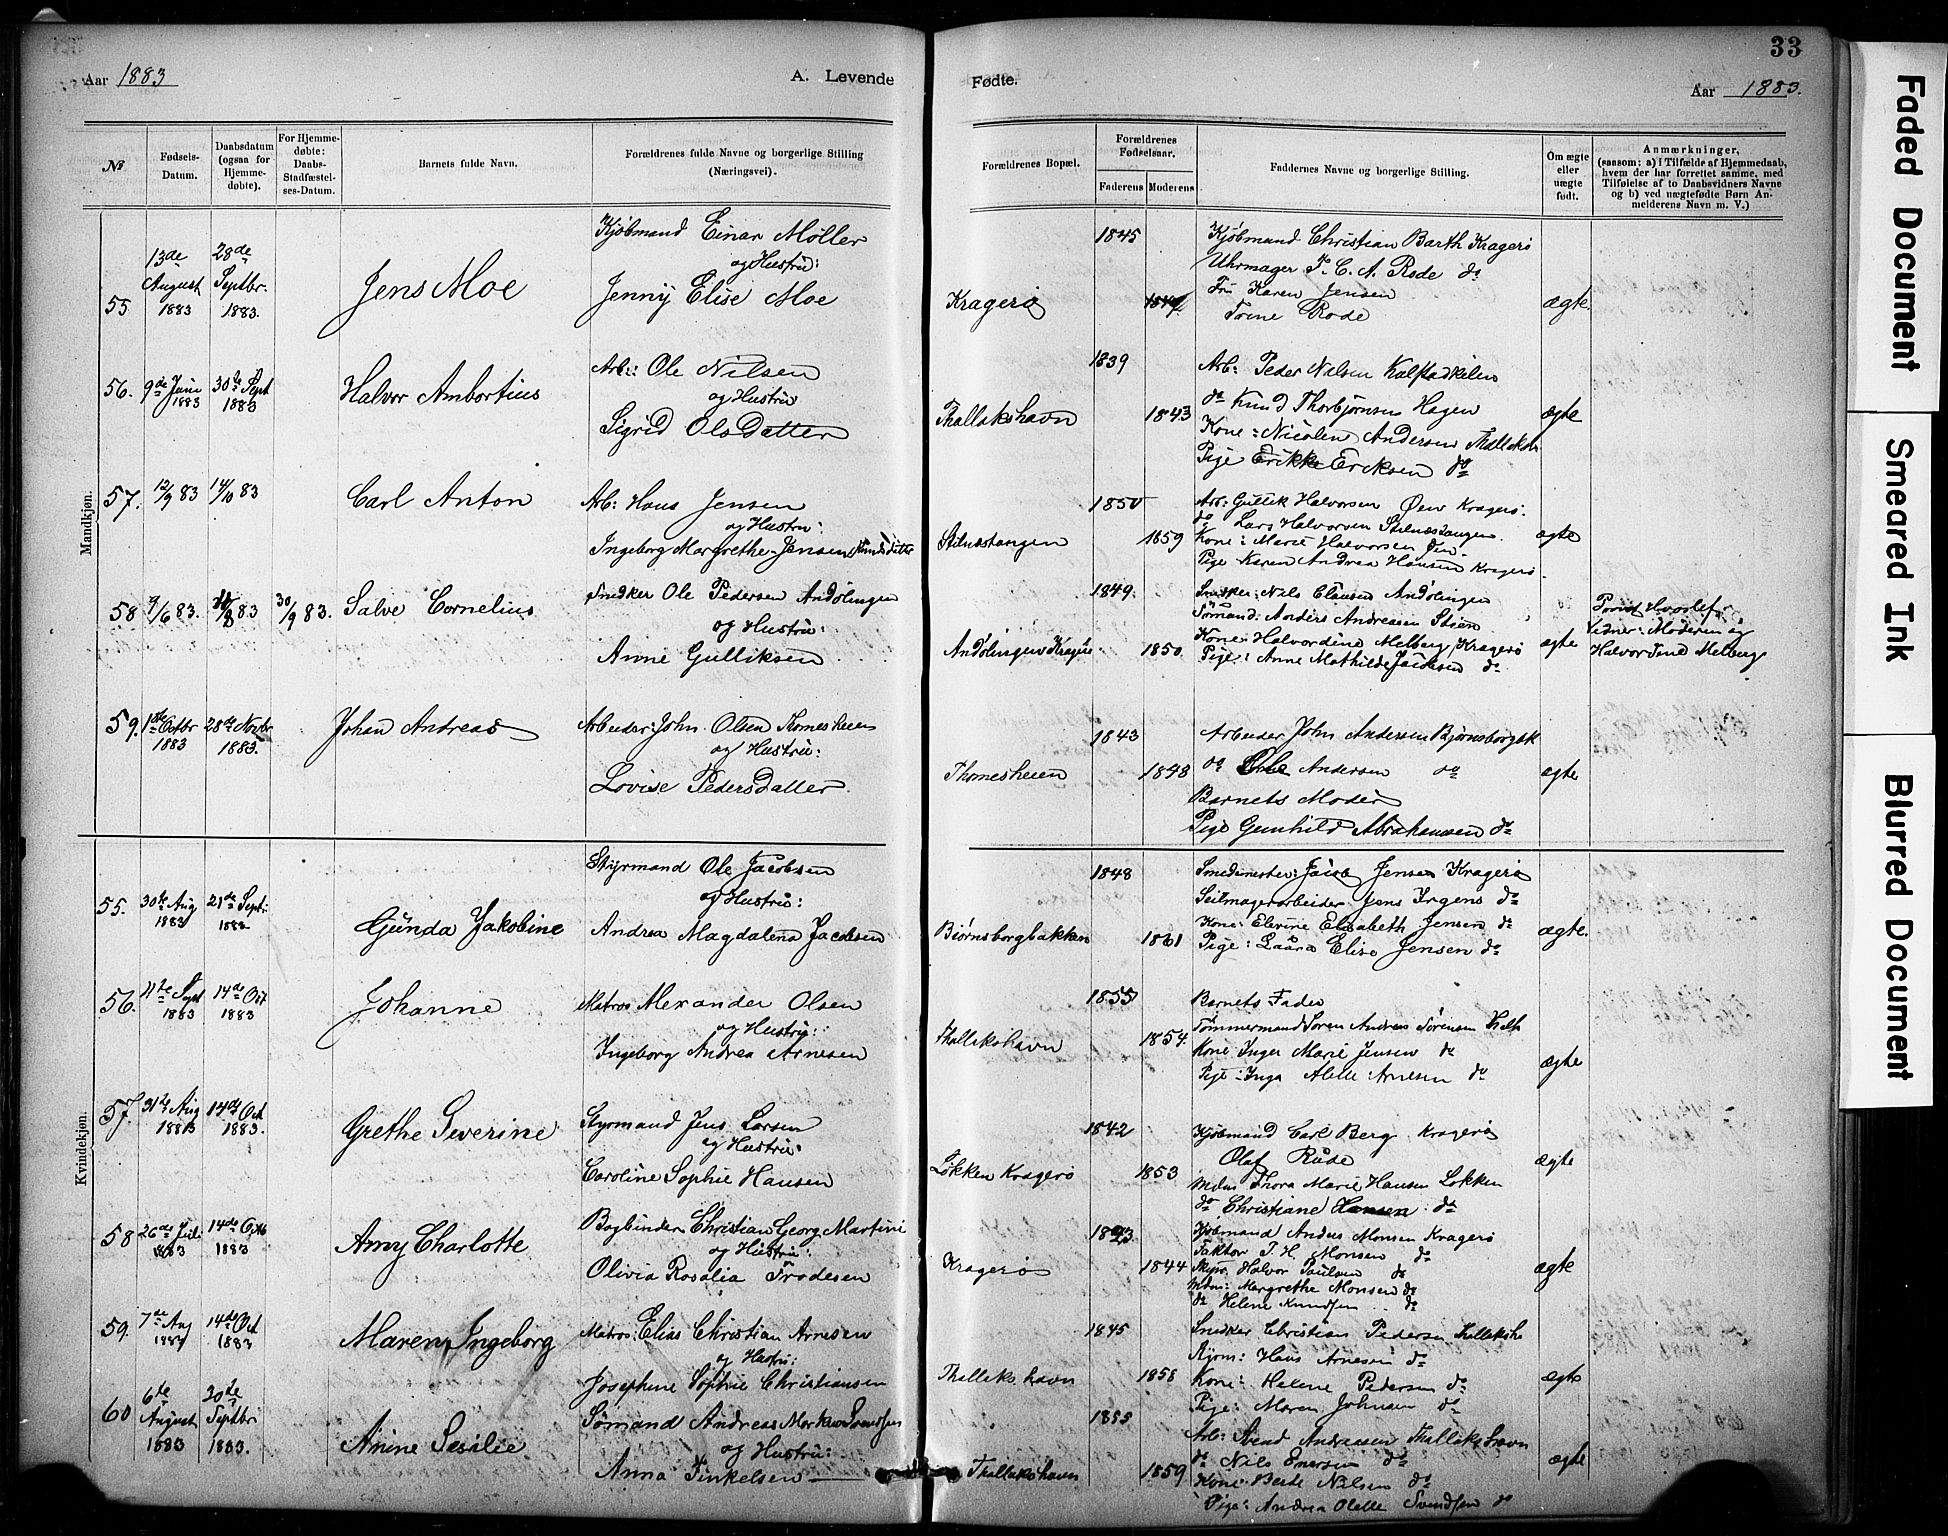 Aar 1883
A. Levende
Fødte.
Aar 1883.
33
№
Fødsels-Datum.
Daabsdatum (ogsaa for Hjemmedøbte).
For Hjemmedøbte: Daabs-Stadfæstelses-Datum.
Barnets fulde Navn.
Forældrenes fulde Navne og borgerlige Stilling (Næringsvei).
Forældrenes Bopæl.
Forældrenes Fødselsaar.
Faderens
Moderens
Faddernes Navne og borgerlige Stilling.
Om ægte eller uægte født.
Anmærkninger,
(saasom: a) i Tilfælde af Hjemmedaab,
hvem der har forrettet samme, med
Tilføielse af to Daabsvidners Navne
og b) ved uægtefødte Børn Anmelderens Navn m. V.)
Mandkjøn.
55 13de August 1883 28de Septbr. 1883. Jens Moe
Kjøbmand Einar Møller
og Hustru:
Jenny Elise Moe
Kragerø 1845
Kjøbmand Christian Barth Kragerø
Uhrmager P. C. A. Rode do
Fru Karen Jensen
Tone Rode
ægte.
56. 9de Juni 1883 30te Sept 1883 Halvor Ambortius
Arb: Ole Nilsen
og Hustru
Sigrid Olsdatter
Thallakshavn 1839 1843
Arb: Peder Nilsen Kalstadkilen
do Knud Thorbjørnsen Hagen
Kone: Nicolen Andersen
Pige Erikke Eriksen do
ægte
57. 12/9 83 14/10 83 Carl Anton
Arb: Hans Jensen
og Hustru:
Ingeborg Margrethe Jensen
Stilnestangen 1850 1859
Arb: Gullik Halvorsen Øen Kragerø.
do Lars Halvorsen Stilnestangen.
Kone: Marie Halvorsen Øen
Pige Karen Andrea Hansen Kragerø.
ægte
58 9/6 83. 83 30/9 83. Salve Cornelius
Snedker Ole Pedersen Andølingen
og Hustru:
Anne Gulliksen
Andølingen Kragerø 1849. 1850.
Snedker: Nils Clausen Andølingen
Sømand: Anders Andreasen Stien
Kone: Halvordine Melberg, Kragerø
Pige: Anne Mathilde Jacobsen do
ægte
Provst Hvoslef.
Vidner: Moderen og
Halvordine Melberg
59. 1ste Octbr 1883 28de Novbr 1883. Johan Andreas
Arbeider: John Olsen Thomesheien
og Hustru:
Lovise Pedersdatter.
Thomesheien 1843 1848
Arbeider John Andersen Bjørnsborgbk
do Ole Andersen do
Barnets Moder
Pige Gunhild Abrahamsen do
ægte
Kvindekjøn.
55. 30te Aug 1883 21de Septr. 1883 Gunda Jakobine
Styrmand Ole Jacobsen
og Hustru:
Andrea Magdalena Jacobsen
Bjørnsborgbakken 1848 1861
Smedmester: Jacob Jensen Kragerø
Seilmagerarbeider Jens Irgens do
Kone: Elevine Elisabeth Jensen do
Pige: Laura Elise Jensen do
ægte.
56. 11te Sept 1883 14de Oct 1883 Johanne
Matros Alexander Olsen
og Hustru:
Ingeborg Andrea Arnesen
Thallakshavn 1855 1854.
Barnets Fader
Tømmermand Søren Andreas Sørensen
Kone Inger Marie Jensen do
Pige: Inga Alette Arnesen do
ægte
57. 31te Aug 1883 14de Oct 1883. Grethe Severine
Styrmand Jens Larsen
og Hustru:
Caroline Sophie Hansen
Løkken Kragerø 1842 1853
Kjøbmand Carl Berg Kragerø
Olaf Rude
Mdm Thora Marie Hansen Løkken
do Christiane Hansen do
ægte
58 26de Juli 1883 14de Octb 1883 Amy Charlotte
Bogbinder Christian Georg Martini
og Hustru:
Olivia Rosalia Frodesen
Kragerø 1844
Kjøbmand Anders Monsen Kragerø
Faktor P. H. Monsen do
Skpr. Halvor Paulsen do
Mdm: Margrethe Monsen do
do Helene Knudsen do
ægte
59. 7de Aug 1883 14de Oct 1883 Maren Ingeborg
Matros: Elias Christian Arnesen
og Hustru:
Josephine Sophie Christiansen
Thallakshavn 1845 1858
Snedker Christian Pedersen Thallaksh
Styrm: Hans Arnesen do
Kone: Helene Pedersen do
Pige: Maren Johnsen do
ægte
60 6te August 1883 30te Septbr 1883. Anine Sesilie
Sømand Andreas Markus Svendsen
og Hustru:
Anna Finkelsen
Thallakshavn 1855 1859
Arb: Svend Andreasen Thallakshavn
do Nils Enersen do
Kone: Berte Nilsen do
Pige: Andrea Olette Svendsen do
ægte
Faded Document Smeared Ink Blurred Document